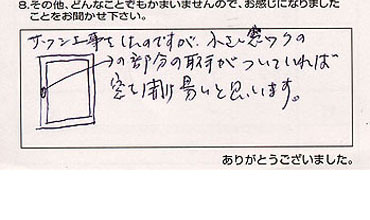 8.その他、どんなことでもかまいませんので、お感じになりました
ことをお聞かせ下さい。
サッシ工事をしたのですが、小さい窓ワクの
の部分の取手がついていれば
窓も開け易いと思います。
ありがとうございました。